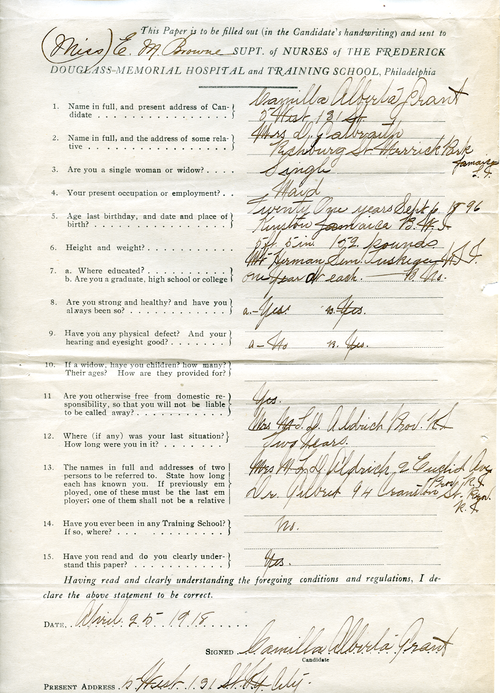 This Paper is to be filled out (in the Candidate's handwriting) and sent to
(Miss) E. M. Browne SUPT. of NURSES of THE FREDERICK
DOUGLASS-MEMORIAL HOSPITAL and TRAINING SCHOOL, Philadelphia
1. Name in full, and present address of Can-
didate
Camilla Alberta Grant
5 West 131 St
2. Name in full, and the address of some rela-
tive
Mrs
St. Merrick Park
Jamaica
L. I.
3. Are you a single woman or widow?
Single
4. Your present occupation or employment?
Maid
5. Age last birthday, and date and place of
birth?
Twenty One years Sept 6 1896
Kingston Jamaica B. W. I.
6. Height and weight?
5 ft 5 in. 152 pounds
7. a. Where educated?
b. Are you a graduate, high school or college
Mt. Hermon Sem. Tuskegee N. I. I.
one year at each. B. No.
8. Are you strong and healthy? and have you
always been so?
a.-Yes. B. Yes.
9. Have you any physical defect? And your
hearing and eyesight good?
a-No B. Yes.
10. If a widow, have you children? how many?
Their ages? How are they provided for?
11 Are you otherwise free from domestic re-
sponsibility, so that you will not be liable
to be called away?
Yes.
12. Where (if any) was your last situation?
How long were you in it?
Mrs Aldrich Prov. R I
Two Years.
13. The names in full and addresses of two
persons to be referred to. State how long
each has known you. If previously em
ployed, one of these must be the last em
ployer: one of them shall not be a relative
Mrs Aldrich, 2 Euclid Ave
Prov. R. I.
Dr. Gilbert 94 Cranston St. Prov.
R. I.
14. Have you ever been in any Training School?
If so, where?
No.
15. Have you read and do you clearly under-
stand this paper?
Yes.
Having read and clearly understanding the foregoing conditions and regulations, I de-
clare the above statement to be correct.
DATE, April 25 1918
SIGNED Camilla Alberta Grant
Candidate
PRESENT ADDRESS 5 West 131 St. N.Y. City.